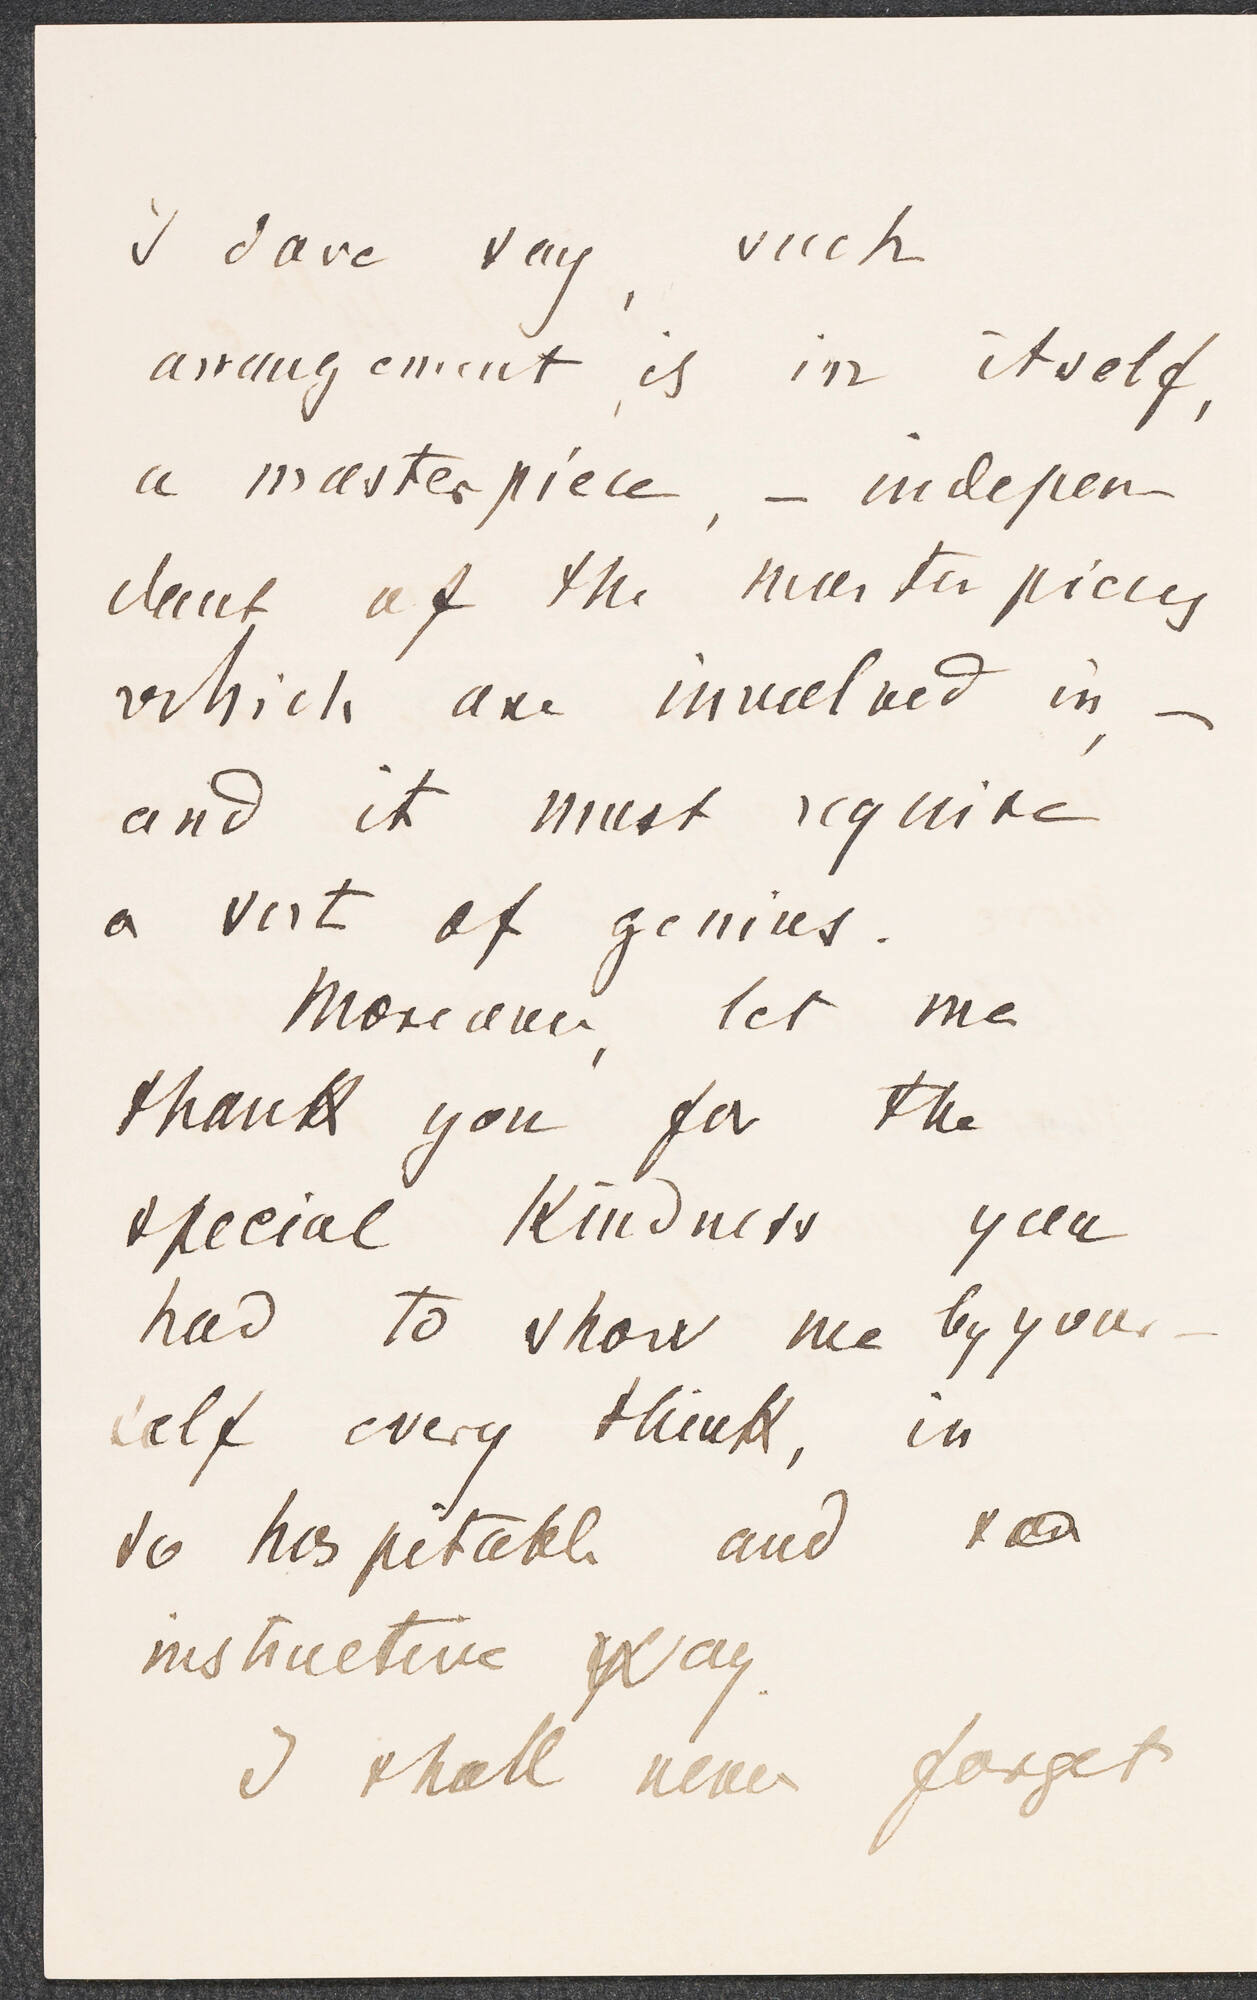 I dare say, such
arrangement, is in itself,
a masterpiece, – indepen-
dent of the masterpieces
which are involved in, –
and it must require
a sort of genius.
Moreover, let me
thank you for the
special Kindness you
had to show me by your-
self every think, in
so hospitable and so
instructive way.
I shall never forget